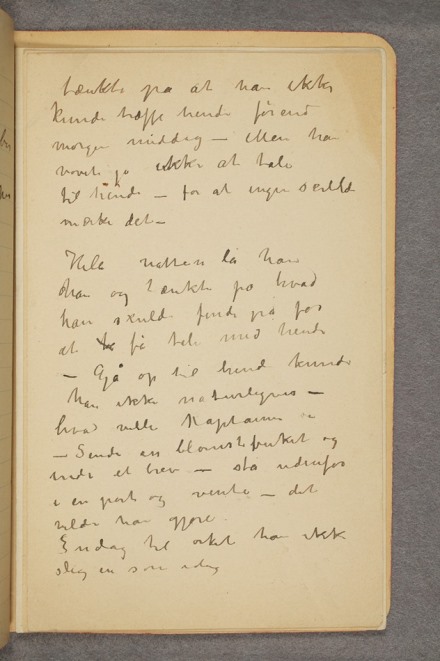 tænkte på at han ikke
kunde træffe hende förend
morgen middag – Men han
vovede jo ikke at tale
til hende – for at ingen skulde
mærke det –
Hele natten lå han
han og tænkte på hvad
han skulde finde på for
at få tale med hende
– Gå op til hende kunde
han ikke naturligvis –
hvad vilde Kaptainen
– Sende en blomsterbuket og
et brev – stå udenfor
i en port og vente – det
vilde han gjøre.
Endag til orket han ikke
slig en som idag